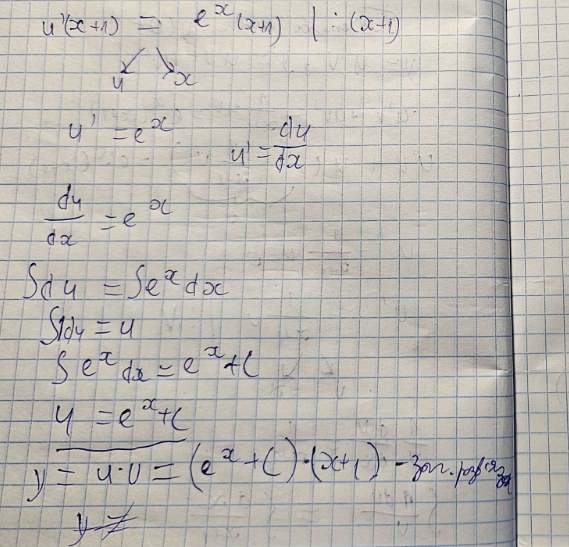 u'(x+1) = e^x(x+1) | : (x+1)
u x
u' = e^x u' = du/dx
du/dx = e^x
∫du = ∫e^x dx
∫1du = u
∫e^x dx = e^x + C
u = e^x + C
y = u·v = (e^x + C)·(x+1) - заг. розв'язок
y =